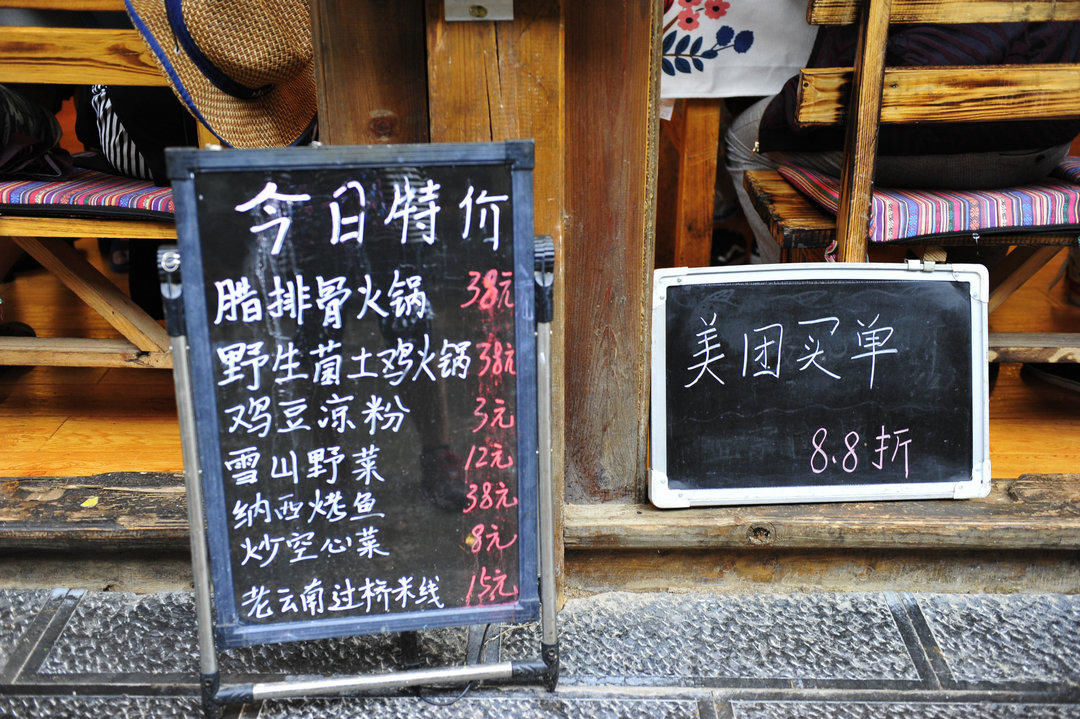 今日特价
腊排骨火锅 38元
野生菌土鸡火锅 38元
鸡豆凉粉 3元
雪山野菜 12元
纳西烤鱼 38元
炒空心菜 8元
老云南过桥米线 15元
美团买单
8.8折